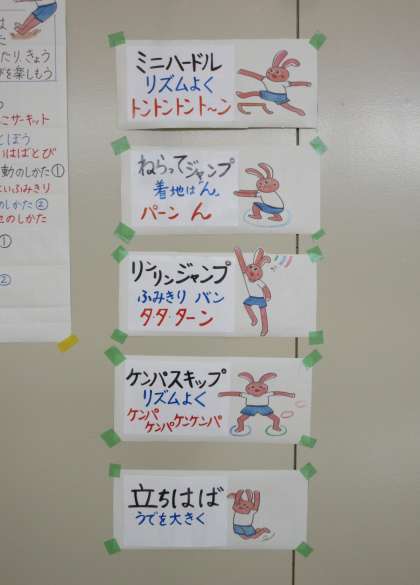 たり、きょう
びを楽しもう
こサーキット
とぼう
いはばとび
動のしかた①
ふみきり
のしかた②
せのしかた
①
②
ミニハードル
リズムよく
トントントント〜ン
ねらってジャンプ
着地は ん
パーン ん
リンリンジャンプ
ふみきり バン
タタ・ターン
ケンパスキップ
リズムよく
ケンパ
ケンパケンケンパ
立ちはば
うでを大きく